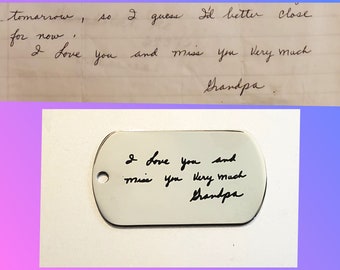 tomorrow, so I guess I'd better close
for now.
I love you and miss you very much
Grandpa
I love you and
miss you very much
Grandpa